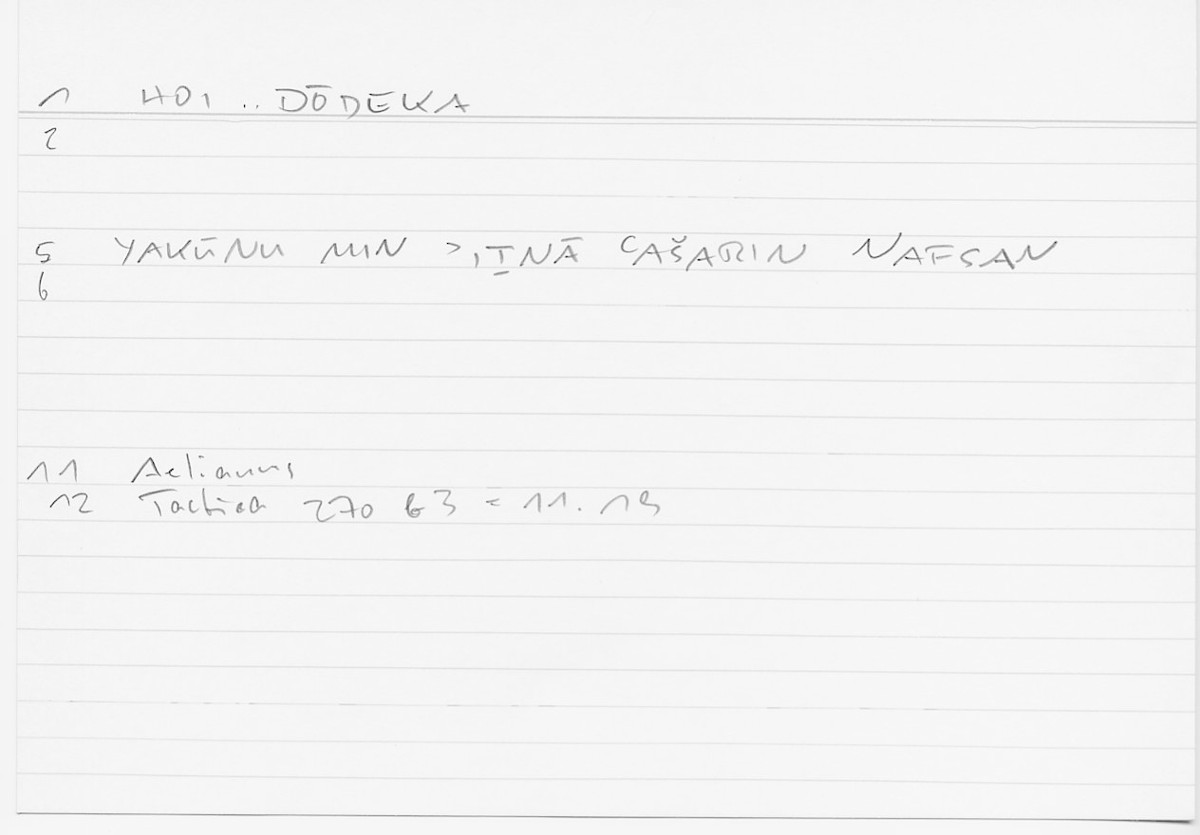 1 HOI .. DŌDEKA
2
5 YAKŪNU MIN >,IṮNĀ CAŠARIN NAFSAN
6
11 Aelianus
12 Tactica 270 b3 = 11.19